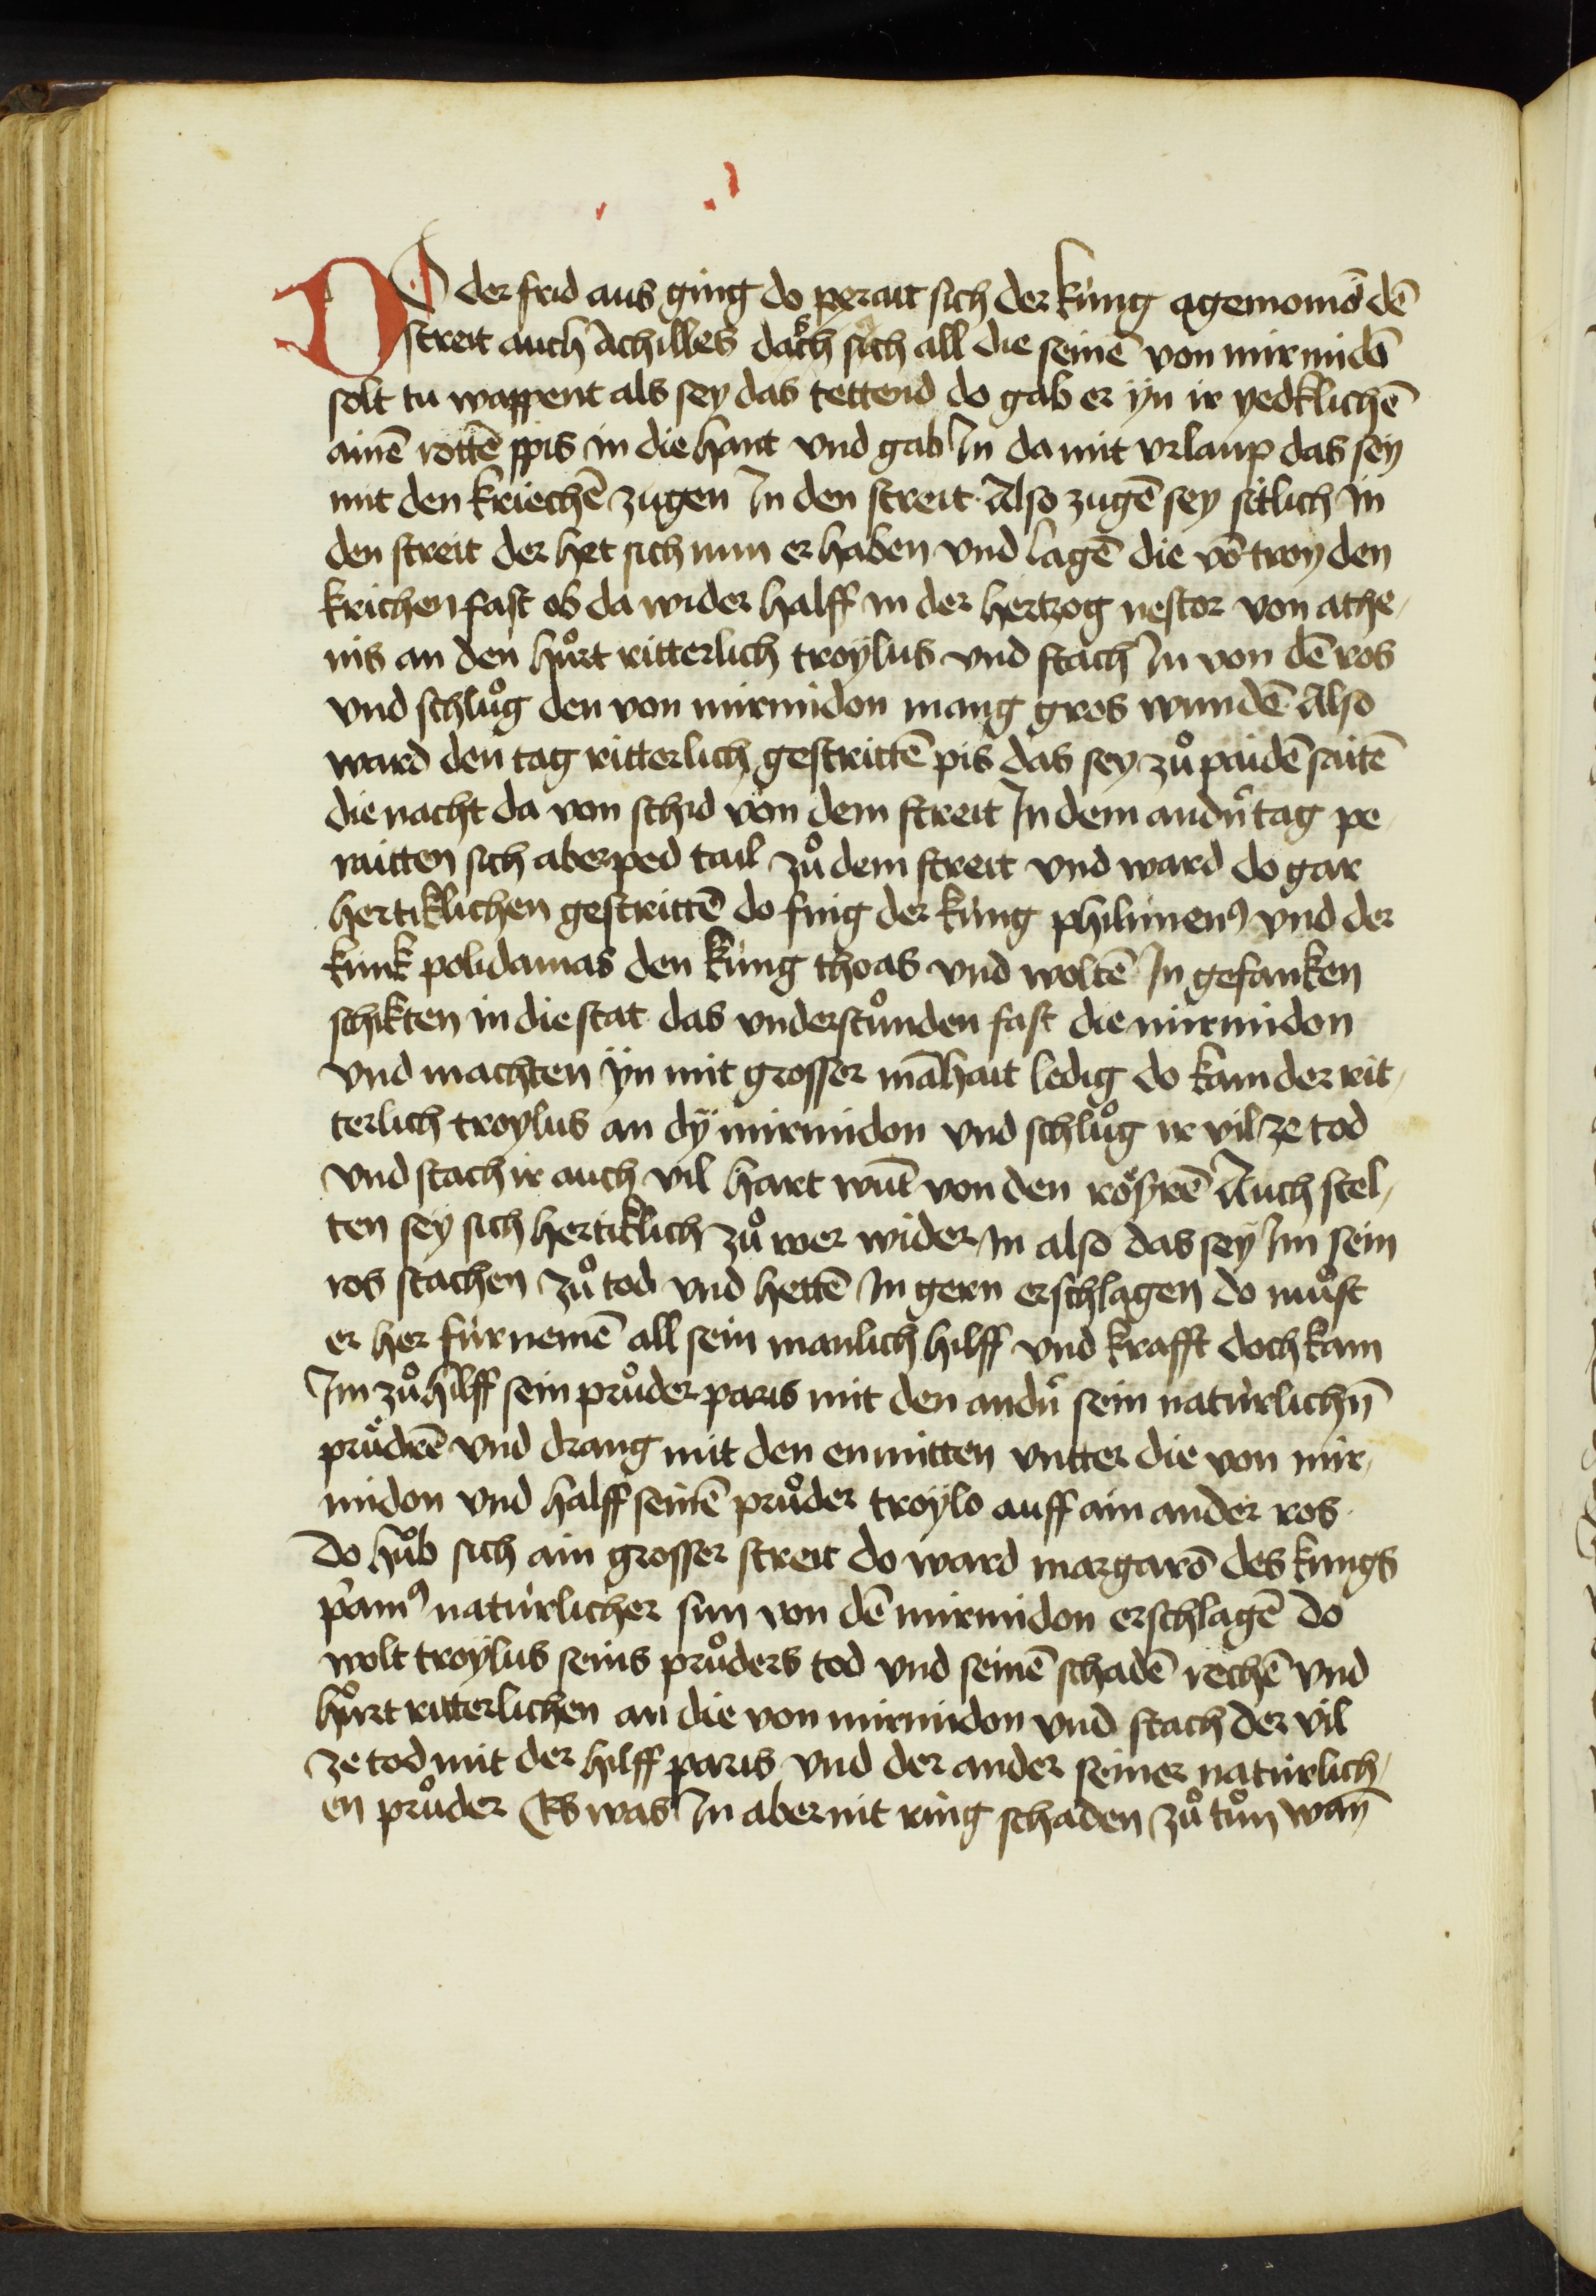 DO der frid aus ging do perait sich der kúng agemomō dē
streit auch Achilles das sich all die seinē von mirmidō
solt tu wappent als sey das tettend do gab er ÿn ir yedklichē
ainē rottē spis in die hant vnd gab In da mit vrlaup das sey
mit den kriechē zugen In den streit Also zugē sey sitlich in
den streit der het sich nun er haben vnd lagē die vō troy den
krichen fast ob da wider halff in der hertzog nestor von athe-
nis an den hůrt ritterlich troylus vnd stach In von dē ros
vnd schlůg den von mirmidon mang gros wundē Also
ward den tag ritterlich gestrittē pis das sey zů paidē saitē
die nacht da von schid von dem streit In dem andn̄ tag pe-
raitten sich aber ped tail zů dem streit vnd ward do gar
hertiklichen gestrittē do fing der kúng philimenꝰ vnd der
kunk polidamas den kúng thoas vnd woltē In gefanken
schikten in die stat das vnderstůnden fast die mirmidon
vnd machten ÿn mit grosser māhait ledig do kam der rit-
terlich troylus an dÿ mirmidon vnd schlůg ir vil ze tod
vnd stach ir auch vil hart wūt von den rösrē Auch stel-
ten sey sich hertiklich zů wer wider In also das sey Im sein
ros stachen zů tod vnd hettē In gern erschlagen do můst
er her fúr nemē all sein manlich hilff vnd krafft doch kam
Im zů hilff sein průder paris mit den andn̄ sein natúrlichn̄
prüdrē vnd drang mit den enmitten vntter die von mir-
midon vnd halff seinē průder troylo auff ain ander ros
do hůb sich ain grosser streit do ward margarō des kungs
p̄amꝰ natúrlicher sun von dē mirmidon erschlagē do
wolt troylus seins průders tod vnd seinē schadē rechē vnd
hůrt ritterlichen an die von mirmidon vnd stach der vil
ze tod mit der hilff paris vnd der ander seiner natúrlich-
en průder Es was In aber nit ring schaden zů tůn wan̄